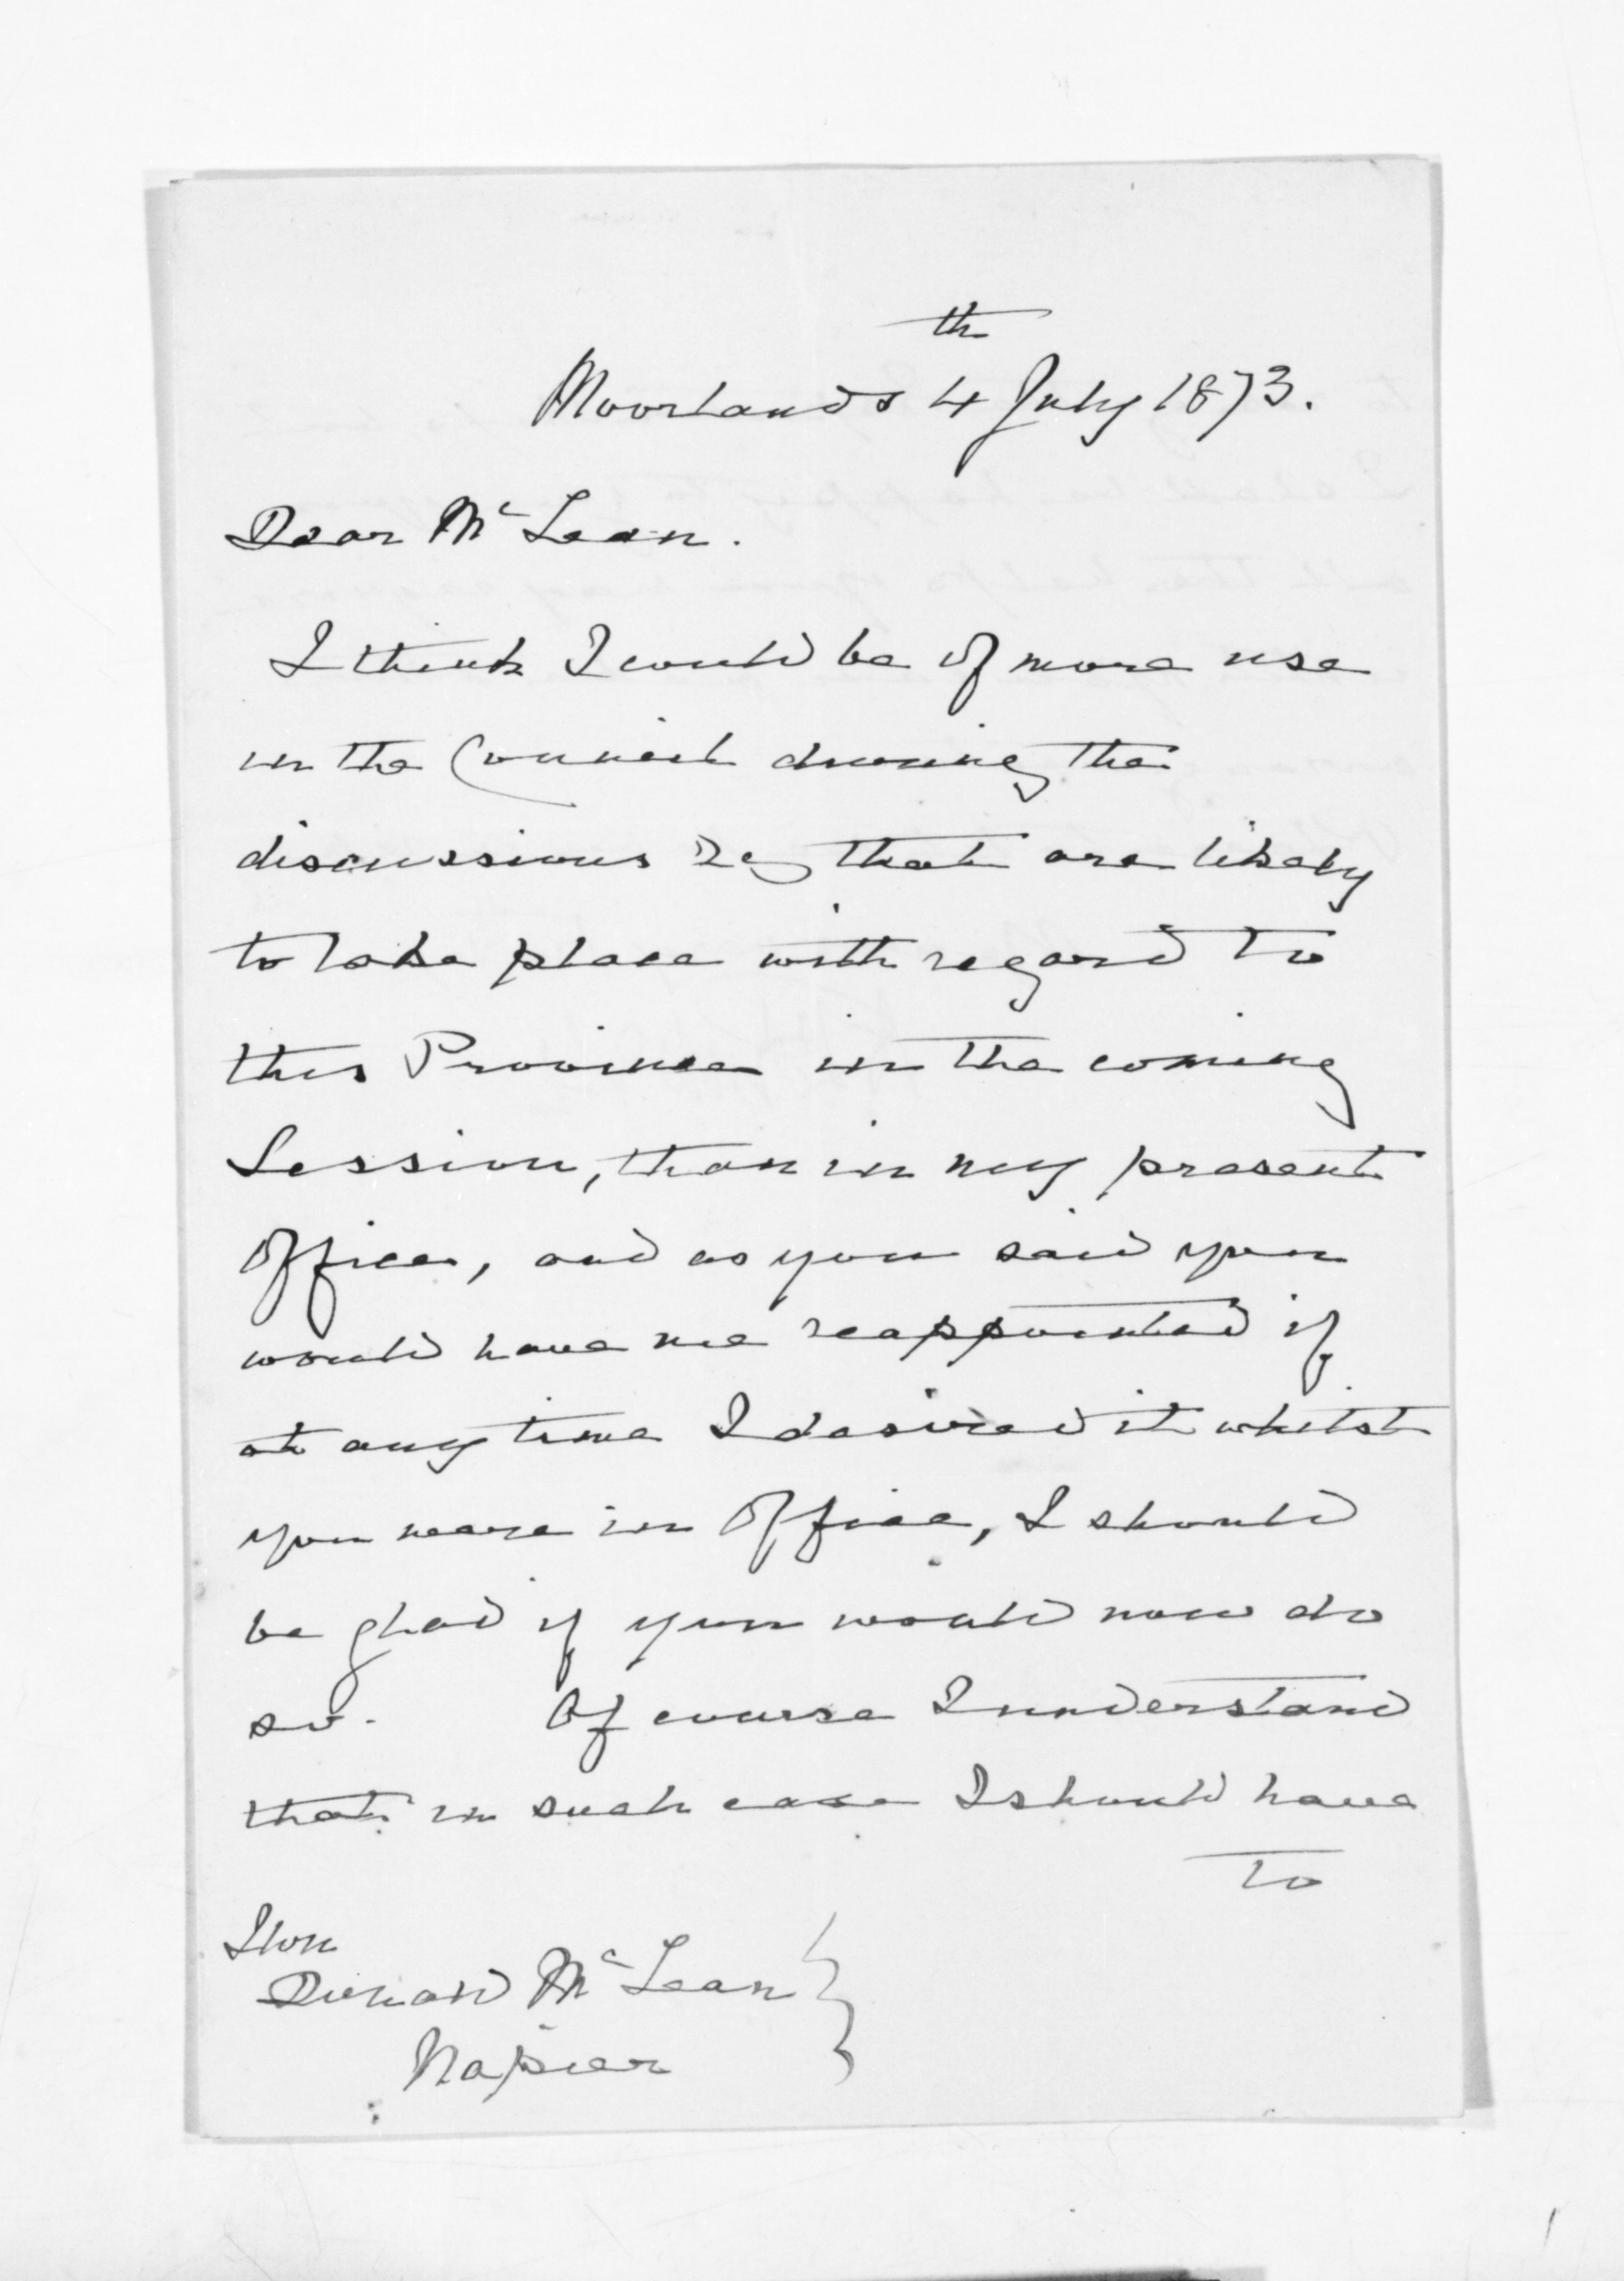 Moorlands 4th July 1873.
Dear McLean.
I think I could be of more use
in the Council during the
discussions &c that are likely
to take place with regard to
this Province in the coming
Session, than in my present
Office, and as you said you
would have me reappointed if
at any time I desired it whilst
you were in Office, I should
be glad if you would now do
so. Of course I understand
that in such case I should have
to
Hon
Donald McLean
Napier